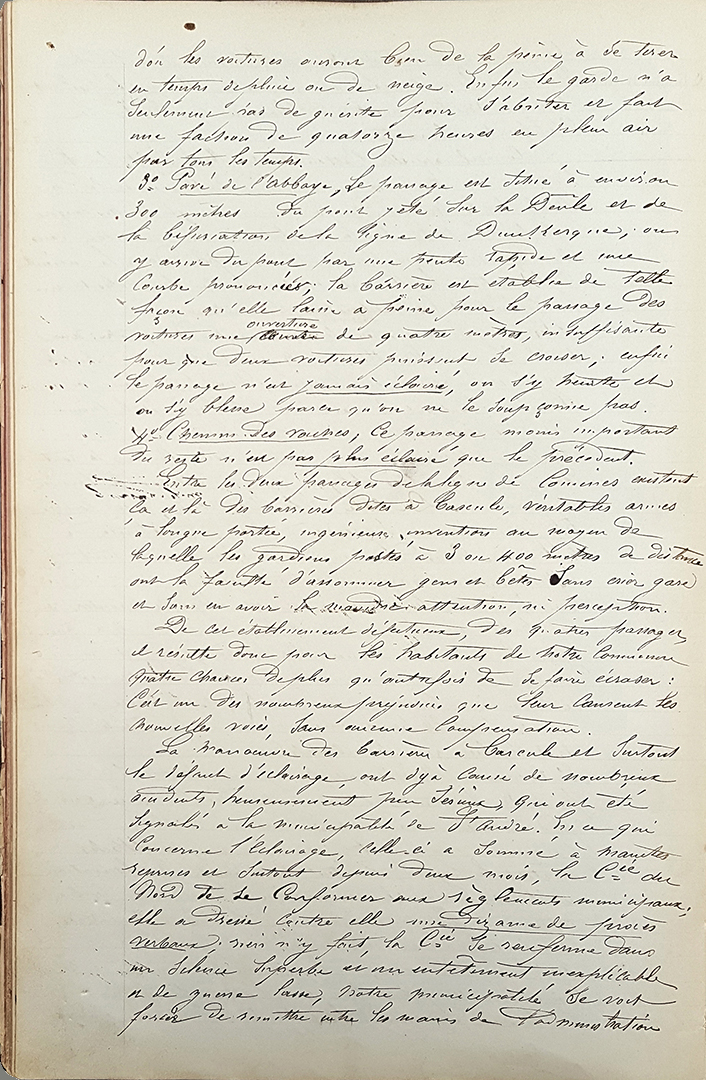 d'où les voitures auront bien de la peine à se tirer
en temps de pluie ou de neige. Enfin le garde n'a
seulement pas de guérite pour s'abriter et fait
une faction de quatorze heures en plein air
par tous les temps.
3º Pavé de l'abbaye, Le passage est situé à environ
300 mètres du pont jeté sur la Deule et de
la bifurcation de la ligne de Dunkerque; on
y arrive du pont par une pente rapide et une
courbe prononcées; la barrière est établie de telle
façon qu'elle laisse à peine pour le passage des
voitures une ouverture de quatre mètres, insuffisante
pour que deux voitures puissent se croiser; enfin
le passage n'est jamais éclairé, on s'y heurte et
on s'y blesse parce qu'on ne le soupçonne pas.
4º Chemin des vaches, Ce passage moins important
du reste n'est pas plus éclairé que le précédent.
Entre les deux passages de la ligne de Comines existent
çà et là des barrières dites à bascule, véritables armes
à longue portée, ingénieuse invention au moyen de
laquelle les gardiens postés à 3 ou 400 mètres de distance
ont la faculté d'assommer gens et bêtes sans crier gare
et sans en avoir la moindre attention, ni perception.
De cet établissement défectueux, des quatre passages,
il résulte donc pour les habitants de notre commune
quatre chances de plus qu'autrefois de se faire écraser:
C'est un des nombreux préjudices que leur causent les
nouvelles voies, sans aucune compensation.
La manœuvre des barrières à bascule et surtout
le défaut d'éclairage, ont déjà causé de nombreux
accidents, heureusement peu sérieux, qui ont été
signalés à la municipalité de St André. En ce qui
concerne l'éclairage, celle-ci a sommé à maintes
reprises et surtout depuis deux mois, la Cie du
Nord de se conformer aux règlements municipaux;
elle a dressé contre elle une dizaine de procès
verbaux; rien n'y fait la Cie se renferme dans
un silence superbe et un entêtement inexplicable
et de guerre lasse, notre municipalité se voit
forcée de remettre entre les mains de l'administration